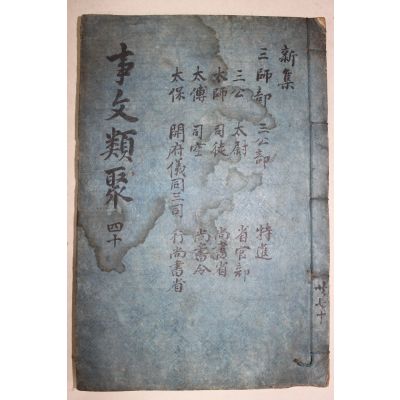 新集
三師部 三公部 特進
三公 太尉 省官部
太師 司徒 尚書省
太傅 司空 尚書令
太保 開府儀同三司 行尚書省
事文類聚 四十